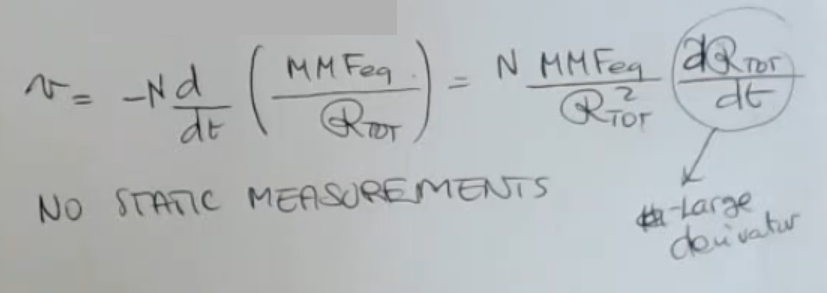 v = -N d/dt ( MMFeq / ℛTOT ) = N MMFeq / ℛ²TOT dℛTOT / dt
NO STATIC MEASUREMENTS
-Large